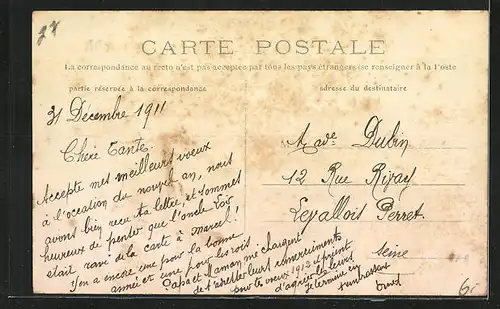 28
CARTE POSTALE
La correspondance au recto n'est pas acceptée par tous les pays étrangers (se renseigner à la Poste
partie réservée à la correspondance
adresse du destinataire
31 Décembre 1911
Chère Tante.
Accepte mes meilleurs voeux
à l'occation du nouvel an, nous
avons bien reçu ta lettre, et sommes
heureux de penser que l'oncle
était ravi de la carte à marcel!
J'en ai encore une pour la bonne
année et une pour les rois
Papa et Maman me chargent
de t'adresser leurs remerciements
pour tes voeux 1912 et prient
d'agréer les leurs
Je termine en
t'embrassant
Dubin
12 Rue Rivay
Levallois Perret.
Seine